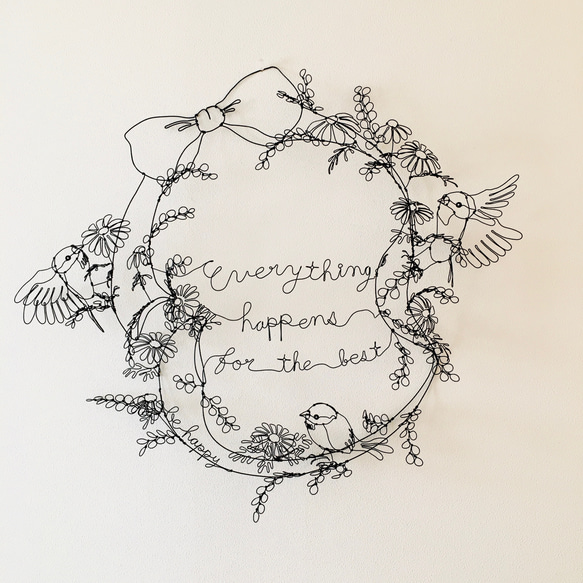 Everything
happens
for the best
happy